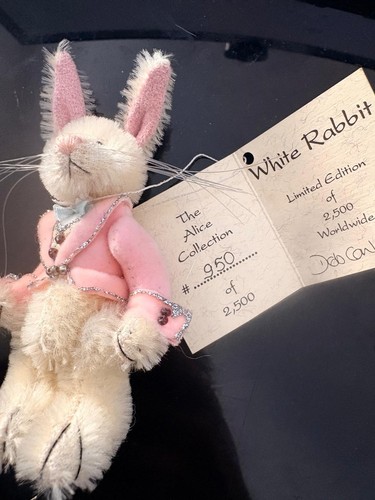 The
Alice
Collection
# 950
of
2,500
White Rabbit
Limited Edition
of
2,500
Worldwide
Deb